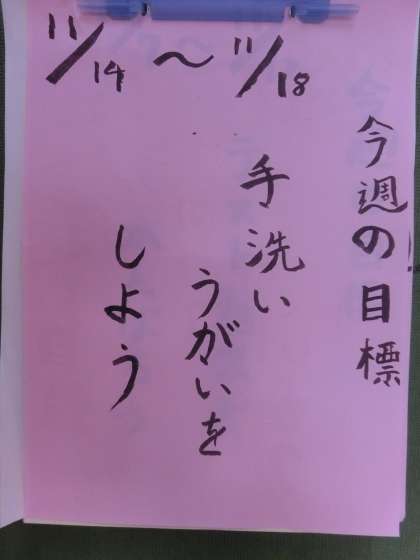 11/14～11/18
今週の目標
手洗い
うがいを
しよう